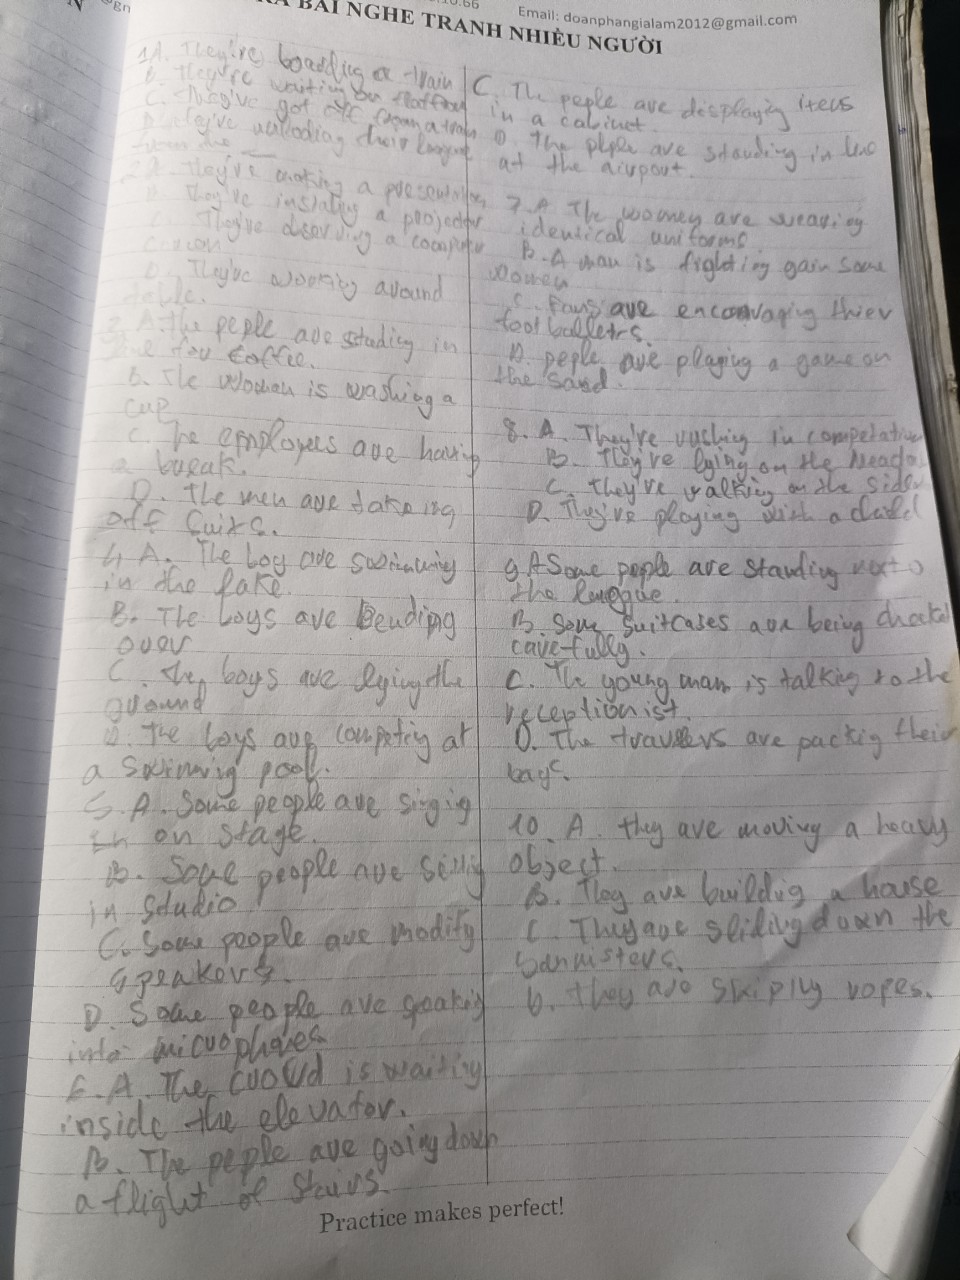 Email: doanphangialam2012@gmail.com
BÀI NGHE TRANH NHIỀU NGƯỜI
1A. They're boarding a train
B. They're waiting on
C.
from a train
D. They've unloading their
from the
A. They've making a
B. They've a projector
C. They're observing a computer
D. They've working around
table.
3. A. the peple ave stading in
line fov Coffee.
B. The Woman is washing a
cup
C. The employees ave having
a bveak.
D. the men ave take ing
off Suits.
4 A. The boy ave swimming
in the lake.
B. The boys ave Bending
over
C. The boys ave lying the
ground
D. the boys ave competing at
a swimming pool.
5. A. Some people ave singing
on stage.
B. Some people ave
in studio
C. Some people ave modify
speakers.
D. Some people ave speaking
into micvophones
6. A. The cvowd is waiting
inside the elevator.
B. The peple ave going down
a flight of Staivs.
C. The peple ave displaying items
in a cabinet.
D. The peple ave standing in line
at the aivpovt.
7. A The women ave weaving
identical unifovms.
B. A man is fighting gain some
women
C. Fans ave encouvaging thiev
footballers.
D. peple ave playing a game on
the Sand.
8. A. They're vushing in
B. They're lying on the
C. they've walking on the
D. They've playing with a child
9. A Some people ave standing next to
the
B. Some Suitcases ave being checked
cavefully.
C. The young man is talking to the
veceptionist.
D. The travellers ave packing their
bags.
10. A. they ave moving a heavy
object.
B. They ave building a house
C. They ave sliding down the
bannisters.
D. they ave skiping vopes.
Practice makes perfect!